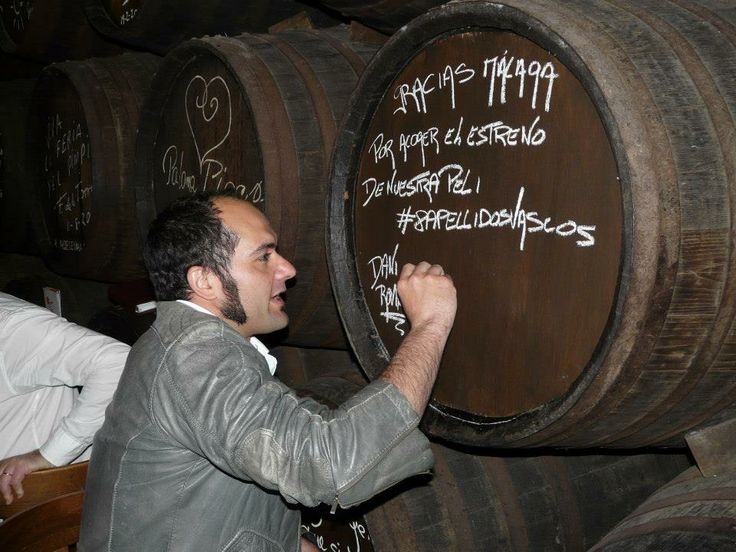 GRACIAS MÁLAGA
POR ACOGER EL ESTRENO
DE NUESTRA PELI
#8APELLIDOSVASCOS
DANI
Paloma Picasso
LA FERIA
DEL